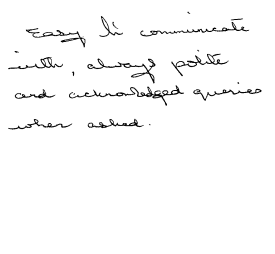 Easy to communicate
with, always polite
and acknowledged queries
when asked.